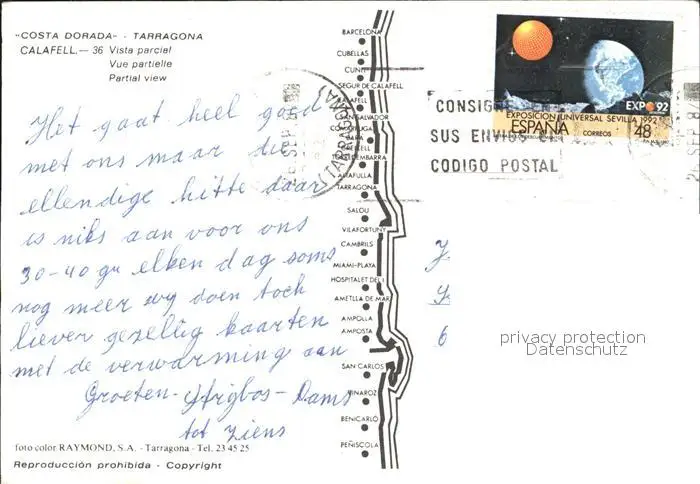 "COSTA DORADA" - TARRAGONA
CALAFELL. - 36 Vista parcial
Vue partielle
Partial view
Het gaat heel goed
met ons maar die
ellendige hitte daar
is niks aan voor ons
30-40 gr elken dag soms
nog meer wy doen toch
liever gezellig kaarten
met de verwarming aan
Groeten - - Dams
tot ziens
foto color RAYMOND, S.A. - Tarragona - Tel. 23 45 25
Reproducción prohibida - Copyright
BARCELONA
CUBELLAS
CUNIT
SEGUR DE CALAFELL
SALVADOR
TARRAGONA
SALOU
VILAFORTUNY
CAMBRILS
MIAMI-PLAYA
HOSPITALET DEL I.
AMETLLA DE MAR
AMPOLLA
AMPOSTA
SAN CARLOS
VINAROZ
BENICARLÓ
PEÑISCOLA
TARRAGONA
CONSIGNE EN
SUS ENVIOS
CODIGO POSTAL
EXPO 92
EXPOSICION UNIVERSAL SEVILLA 1992
ESPAÑA
CORREOS
48
Y.
Y.
6
privacy protection
Datenschutz